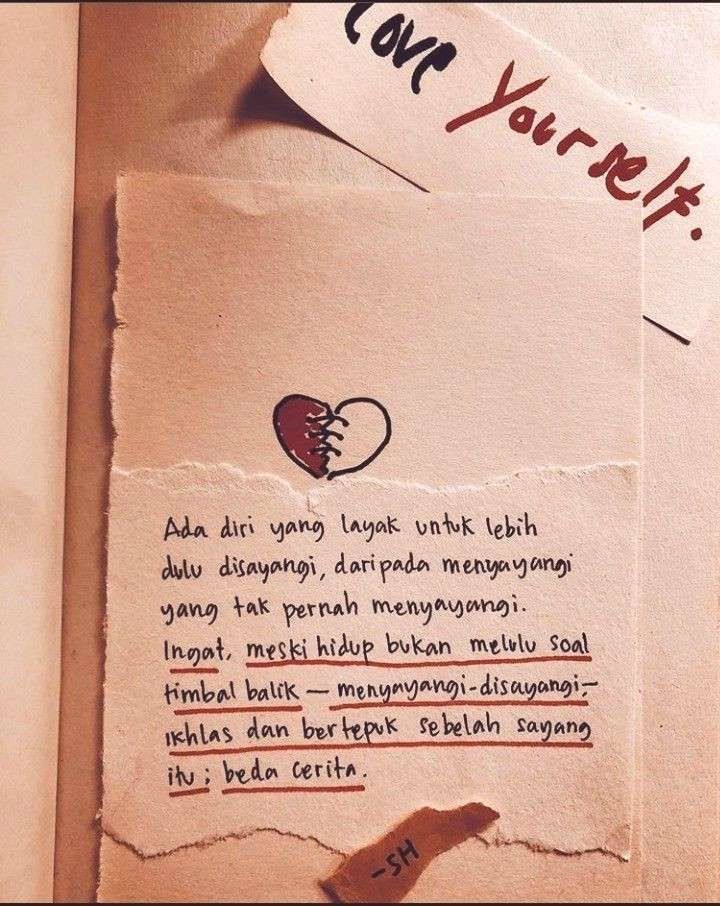 Love Yourself.
Ada diri yang layak untuk lebih
dulu disayangi, daripada menyayangi
yang tak pernah menyayangi.
Ingat, meski hidup bukan melulu soal
timbal balik — menyayangi-disayangi,-
ikhlas dan bertepuk sebelah sayang
itu; beda cerita.
-SH